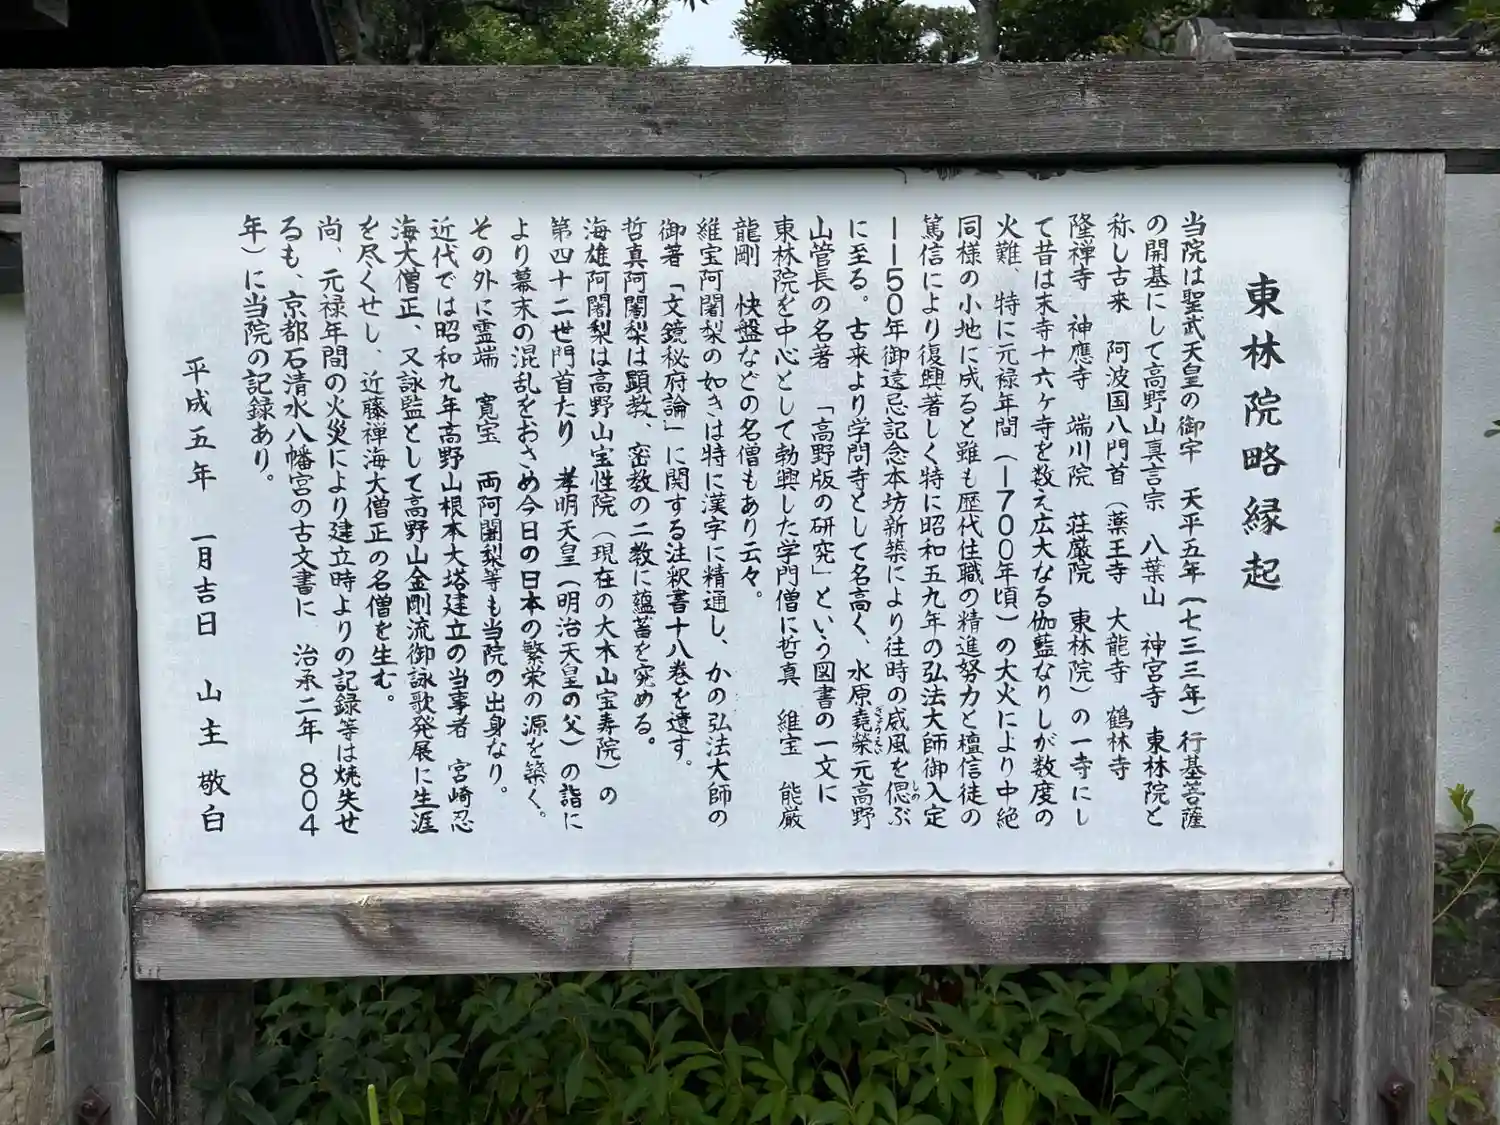 東林院略縁起
当院は聖武天皇の御宇　天平五年（七三三年）行基菩薩
の開基にして高野山真言宗　八葉山　神宮寺　東林院と
称し古来　阿波国八門首（薬王寺　大龍寺　鶴林寺
隆禅寺　神應寺　端川院　荘厳院　東林院）の一寺にし
て昔は末寺十六ヶ寺を数え広大なる伽藍なりしが数度の
火難、特に元禄年間（一７００年頃）の大火により中絶
同様の小地に成ると雖も歴代住職の精進努力と檀信徒の
篤信により復興著しく特に昭和五九年の弘法大師御入定
一一５０年御遠忌記念本坊新築により往時の威風を偲ぶ
に至る。古来より学問寺として名高く、水原堯榮元高野
山管長の名著　「高野版の研究」という図書の一文に
東林院を中心として勃興した学門僧に哲真　維宝　能厳
龍剛　快盤などの名僧もあり云々。
維宝阿闍梨の如きは特に漢字に精通し、かの弘法大師の
御著「文鏡秘府論」に関する注釈書十八巻を遺す。
哲真阿闍梨は顕教、密教の二教に蘊蓄を究める。
海雄阿闍梨は高野山宝性院（現在の大本山宝寿院）の
第四十二世門首たり　孝明天皇（明治天皇の父）の詣に
より幕末の混乱をおさめ今日の日本の繁栄の源を築く。
その外に霊端　寛宝　両阿闍梨等も当院の出身なり。
近代では昭和九年高野山根本大塔建立の当事者　宮崎忍
海大僧正、又詠監として高野山金剛流御詠歌発展に生涯
を尽くせし、近藤禅海大僧正の名僧を生む。
尚、元禄年間の火災により建立時よりの記録等は焼失せ
るも、京都石清水八幡宮の古文書に　治承二年　８０４
年）に当院の記録あり。
平成五年　一月吉日　山主　敬白